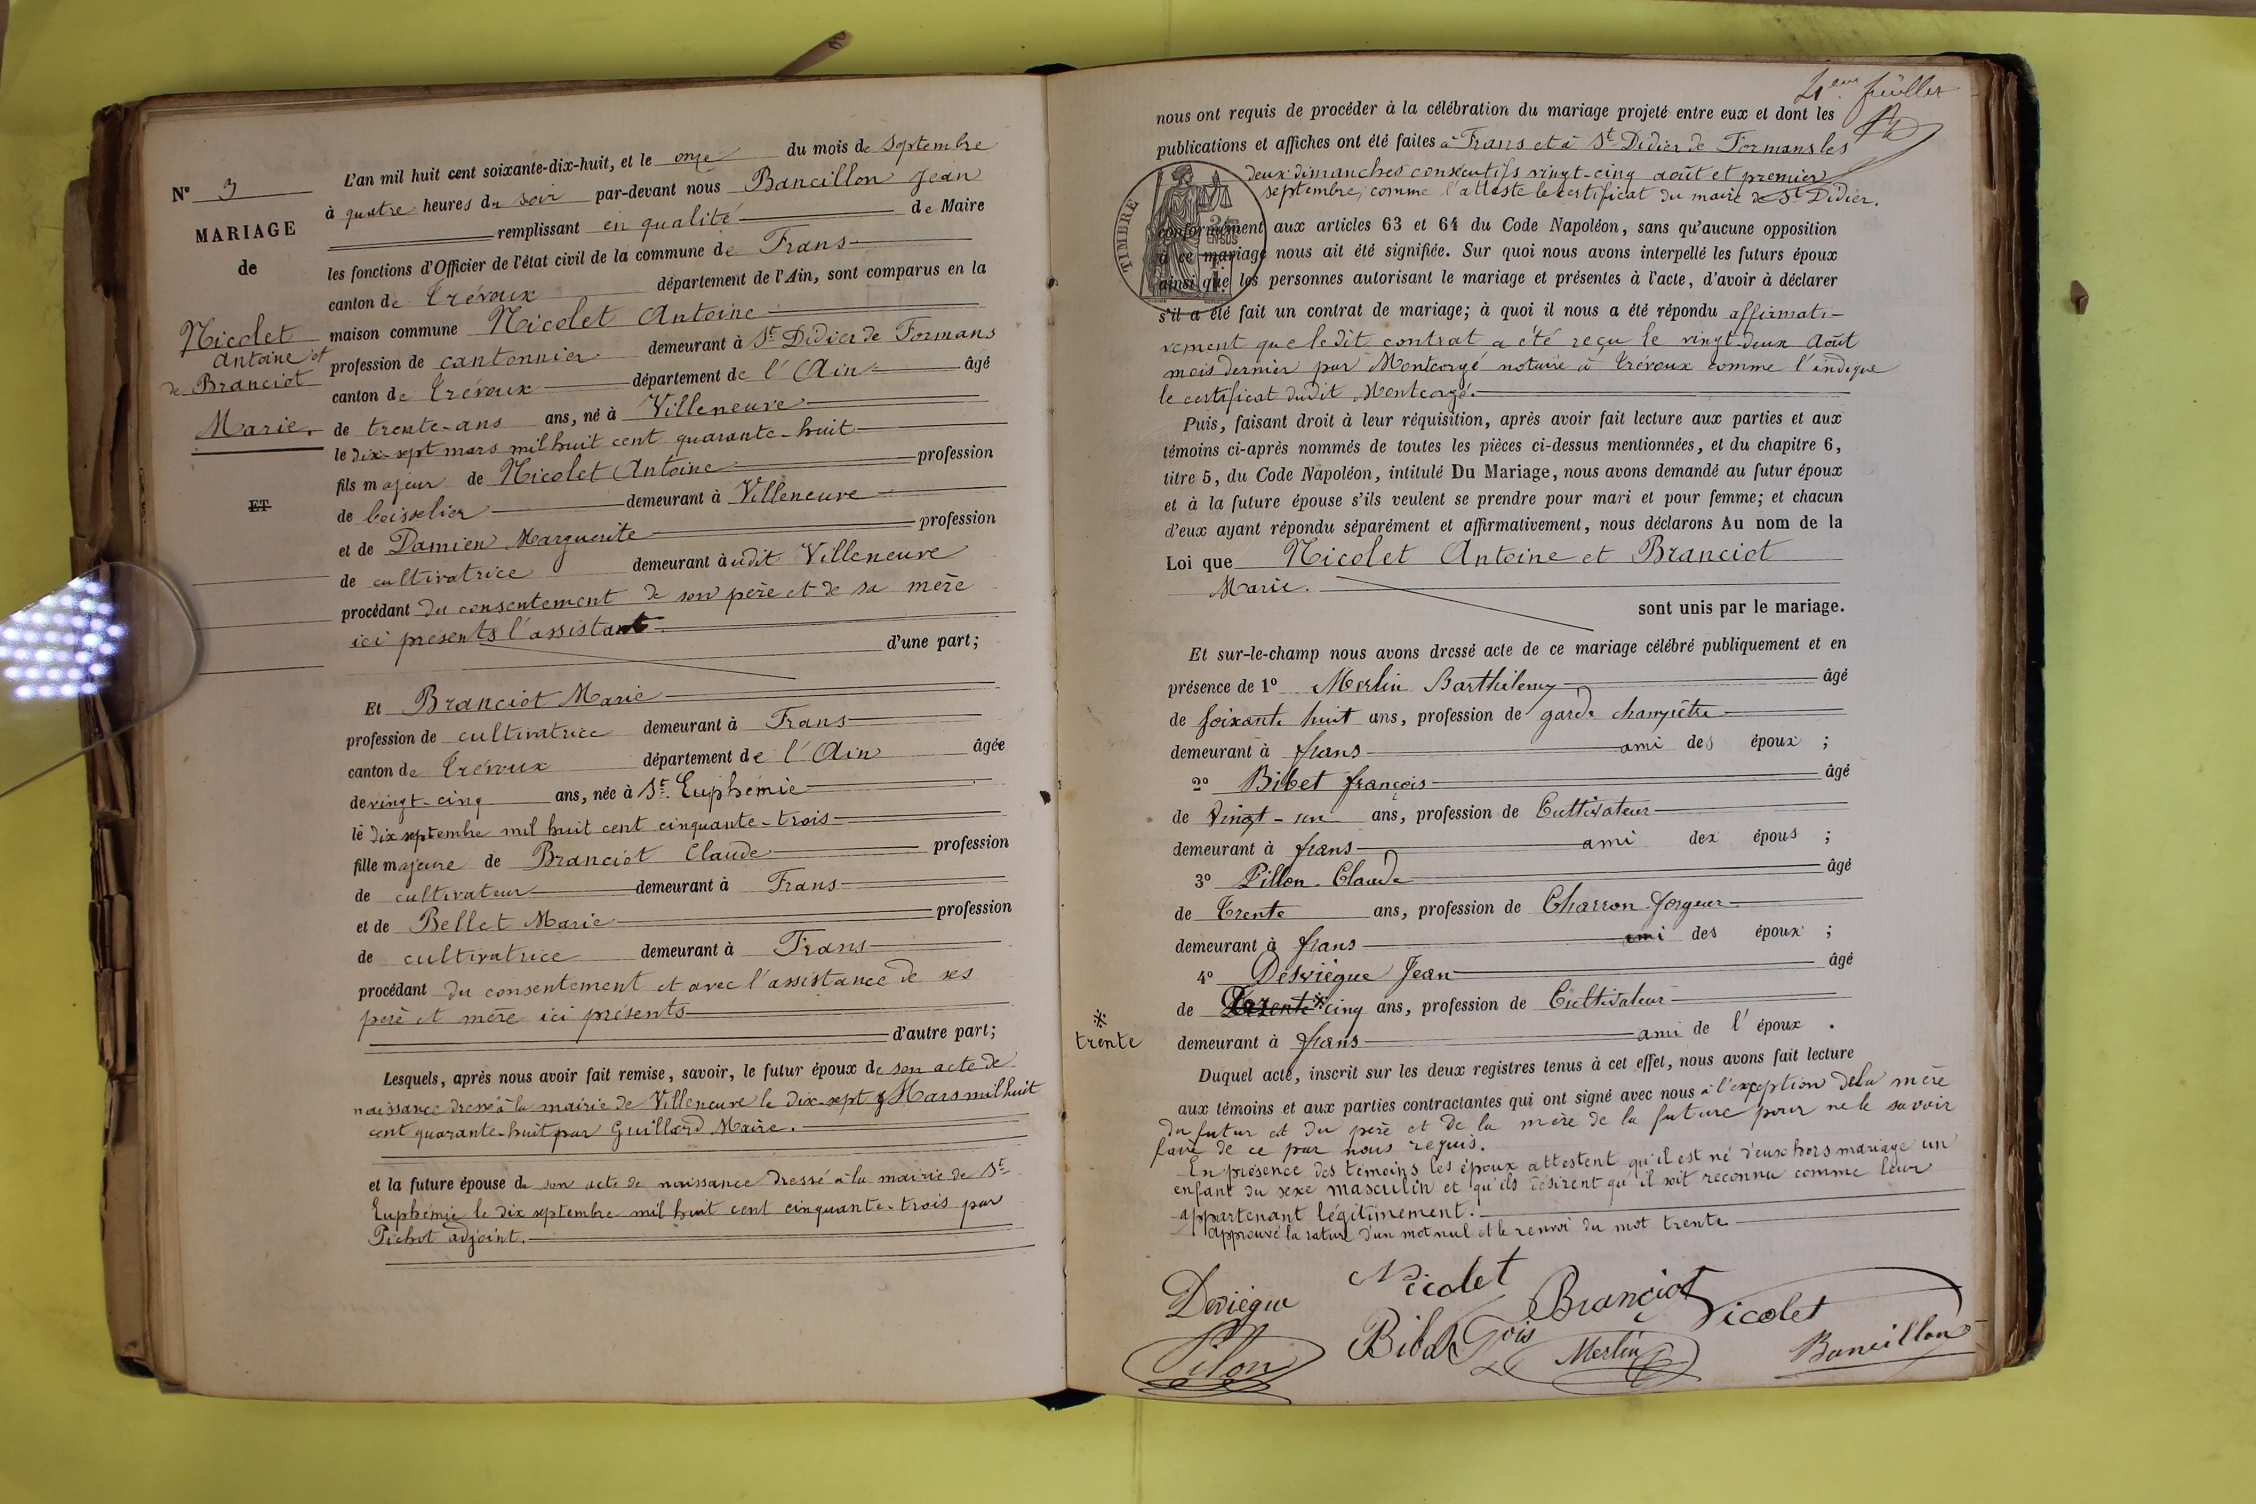 N° 3
MARIAGE
de
Nicolet
Antoine et
de Branciot
Marie.
ET
L'an mil huit cent soixante-dix-huit, et le onze du mois de Septembre
à quatre heures du soir par-devant nous Bancillon Jean
remplissant en qualité de Maire
les fonctions d'Officier de l'état civil de la commune de Frans
canton de Trévoux département de l'Ain, sont comparus en la
maison commune Nicolet Antoine
profession de cantonnier demeurant à St Didier de Formans
canton de Trévoux département de l'Ain âgé
de trente-ans ans, né à Villeneuve
le dix-sept mars mil huit cent quarante-huit
fils majeur de Nicolet Antoine profession
de boisselier demeurant à Villeneuve
et de Damien Marguerite profession
de cultivatrice demeurant àudit Villeneuve
procédant du consentement de son père et de sa mère
ici présents l'assistant
d'une part;
Et Branciot Marie
profession de cultivatrice demeurant à Frans
canton de Trévoux département de l'Ain âgée
de vingt-cinq ans, née à Ste Euphémie
le dix septembre mil huit cent cinquante-trois
fille majeure de Branciot Claude profession
de cultivateur demeurant à Frans
et de Bellet Marie profession
de cultivatrice demeurant à Frans
procédant du consentement et avec l'assistance de ses
père et mère ici présents
d'autre part;
Lesquels, après nous avoir fait remise, savoir, le futur époux de son acte de
naissance dressé à la mairie de Villeneuve le dix-sept Mars mil huit
cent quarante-huit par Guillard Maire.
et la future épouse de son acte de naissance dressé à la mairie de Ste
Euphémie le dix septembre mil huit cent cinquante-trois par
Pichot adjoint.
feuillet
nous ont requis de procéder à la célébration du mariage projeté entre eux et dont les
publications et affiches ont été faites à Frans et à St Didier de Formans les
deux dimanches consécutifs vingt-cinq août et premier
septembre, comme l'atteste le certificat du maire de St Didier.
TIMBRE
conformément aux articles 63 et 64 du Code Napoléon, sans qu'aucune opposition
à ce mariage nous ait été signifiée. Sur quoi nous avons interpellé les futurs époux
ainsi que les personnes autorisant le mariage et présentes à l'acte, d'avoir à déclarer
s'il a été fait un contrat de mariage; à quoi il nous a été répondu affirmati-
vement que ledit contrat a été reçu le vingt-deux Août
mois dernier par Montcorgé notaire à Trévoux comme l'indique
le certificat dudit Montcorgé.
Puis, faisant droit à leur réquisition, après avoir fait lecture aux parties et aux
témoins ci-après nommés de toutes les pièces ci-dessus mentionnées, et du chapitre 6,
titre 5, du Code Napoléon, intitulé Du Mariage, nous avons demandé au futur époux
et à la future épouse s'ils veulent se prendre pour mari et pour femme; et chacun
d'eux ayant répondu séparément et affirmativement, nous déclarons Au nom de la
Loi que Nicolet Antoine et Branciot
Marie.
sont unis par le mariage.
Et sur-le-champ nous avons dressé acte de ce mariage célébré publiquement et en
présence de 1° Merlin Barthilemy âgé
de soixante huit ans, profession de garde champêtre
demeurant à frans ami des époux ;
2° Bibet françois âgé
de Vingt-un ans, profession de Cultivateur
demeurant à frans ami des épous ;
3° Pillon Claude âgé
de Trente ans, profession de Charron forgeur
demeurant à frans ami des époux ;
4° Desviègue Jean âgé
de ※ cinq ans, profession de Cultivateur
※
trente
demeurant à frans ami de l'époux .
Duquel acte, inscrit sur les deux registres tenus à cet effet, nous avons fait lecture
aux témoins et aux parties contractantes qui ont signé avec nous à l'exception de la mère
du futur et du père et de la mère de la future pour ne le savoir
faire de ce par nous requis.
En présence des témoins les époux attestent qu'il est né d'eux hors mariage un
enfant du sexe masculin et qu'ils désirent qu'il soit reconnu comme leur
appartenant légitimement.
approuvé la rature d'un mot nul et le renvoi du mot trente
Deviégue Nicolet Brançiot Nicolet
Pilon Bibet fçois Merlin Bancillon